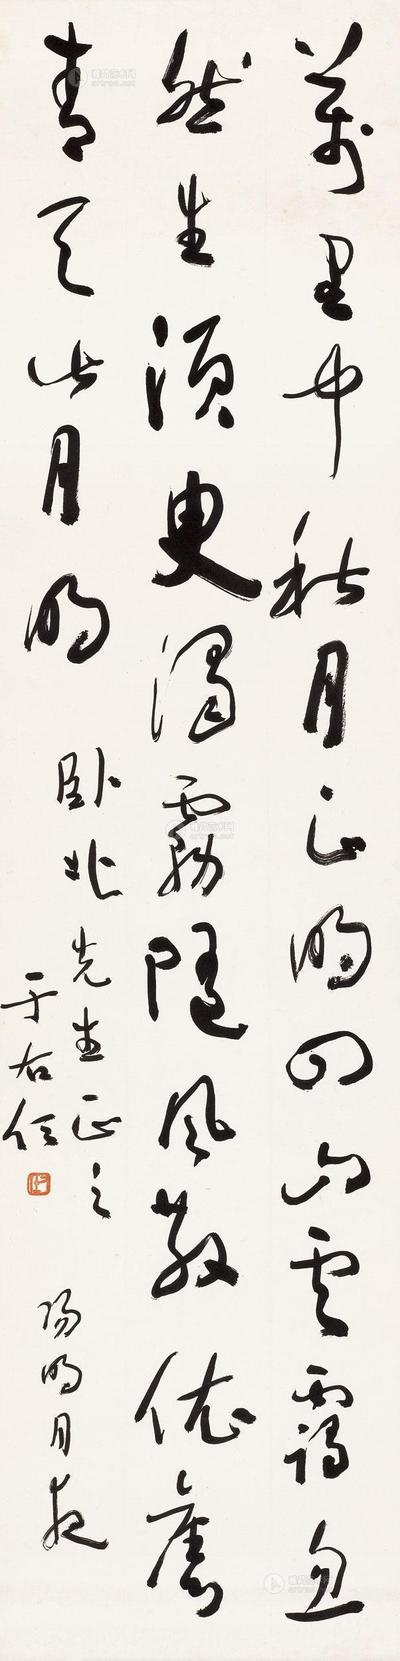 萬里中秋月正明四山雲靄忽
然生須臾濁霧隨風散依舊
青天此月明
卧 先生正之
于右任
陽明月夜